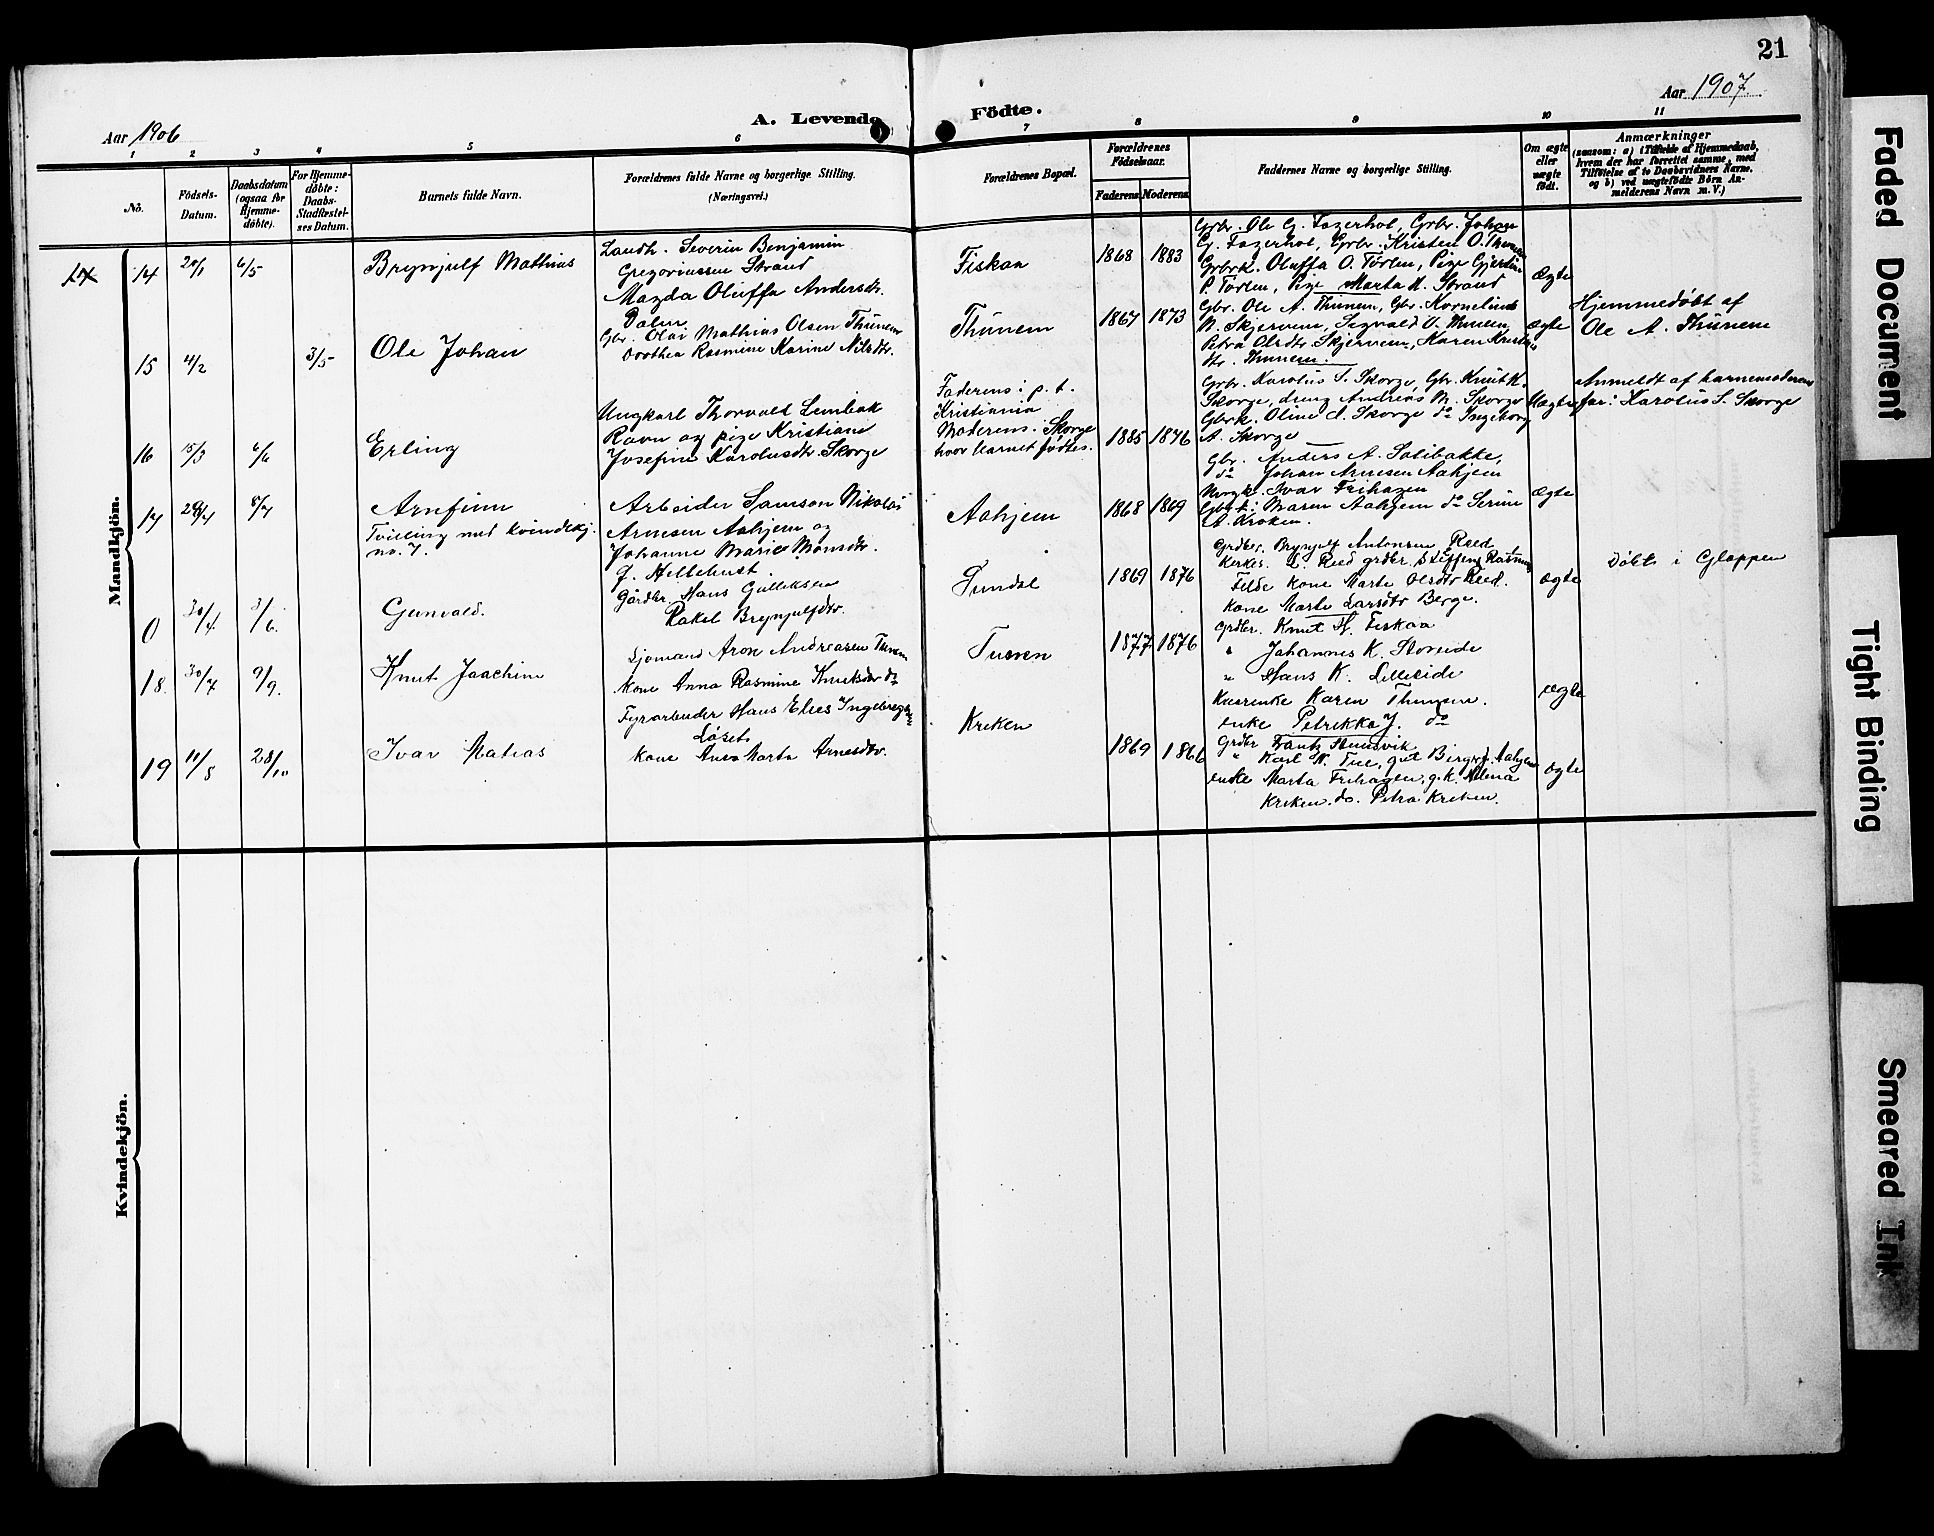 21
Aar 1906
A. Levende Födte.
Aar 1907.
1 2 3 4 5 6 7 8 9 10 11
No.
Födsels-
Datum.
Daabsdatum
(ogsaa for
Hjemme-
döbte).
For Hjemme-
döbte:
Daabs-
Stadfæstel-
ses Datum.
Barnets fulde Navn.
Forældrenes fulde Navne og borgerlige Stilling.
(Næringsvei.)
Forældrenes Bopæl.
Forældrenes
Födselsaar.
Faderens Moderens
Faddernes Navne og borgerlige Stilling.
Om ægte
eller
uægte
födt.
Anmærkninger
(saasom: a) i Tilfælde af Hjemmedaab,
hvem der har forrettet samme, med
Tilföielse af to Daabsvidners Navne,
og b) ved uægtefödte Börn An-
melderens Navn m. V.)
Mandkjön.
14 20/1 6/5
Brynjulf Mathias
Landh. Severin Benjamin
Gregoriussen Strand
Magda Oluffa Andersdr.
Dalen
Fiskaa
1868 1883
Grbr. Ole G. Fagerhol, Grbr. Johan
G. Fagerhol, Grbr. Kristen O. Thunem
Grbrk. Oluffa O. Törlen, Pige Gjerdine
P. Törlen, Pige Marta M. Strand
Ægte
15 4/2 3/5
Ole Johan
Gbr. Olai Mathias Olsen Thunem
Dorthea Rasmine Karine Nilsdtr.
Thunem
1867 1873
Gbr. Ole A. Thunem, Gbr. Kornelius
N. Skjervem, Sigvald O. Thunem,
Petra Olsdtr. Skjervem, Karen Kristens
dtr. Thunem.
ægte
Hjemmedöbt af
Ole A. Thunem
16 15/3 6/6
Erling
Ungkarl Thorvald Lembak
Ravn og pige Kristiane
Josefine Karolusdtr. Skorge
Faderens: p. t.
Kristiania
Moderens: Skorge
hvor barnet födtes.
1885 1876
Grbr. Karolus S. Skorge, Gbr. Knut K.
Skorge, dreng Andreas M. Skorge
Gbrk. Oline d. Skorge do Ingeborg
A. Skorge
Uægte
Anmeldt af barnemoderens
far: Karolus S. Skorge
17 29/4 8/7
Arnfinn
Tvilling med kvindekj.
no. 7.
Arbeider Samson Nikolai
Arnesen Aahjem og
Johanne Marie Monsdtr.
f. Hellehust
Aahjem
1868 1869
Gbr. Anders A. Salibakke,
do Johan Arnesen Aahjem
Ungk. Ivar Frihagen
Gbrk: Maren Aahjem do Serine
A. Kroken.
ægte
0 30/4 3/6.
Gunvald.
Gårdbr. Hans Gulleksen
Rakel Brynjulfsdtr.
Sundal
1869 1876
Grdbr. Brynjulf Antonsen Reed
Kirkes. L. Reed grdbr Steffen Rasmus
Felde kone Marte Olsdtr Reed.
Kone Marte Larsdtr Berge.
ægte
Döbt i Gloppen
18. 30/7 9/9.
Knut Joachim
Sjømand Aron Andreasen Tunem
Kone Anna Rasmine Knutsdtr do
Tunem
1877 1876
Grdbr. Knut H. Fiskaa
" Johannes K. Storeide
" Hans K. Lilleeide
Kaarenke Karen Thunem.
enke Petrikka J. do
ægte
19 11/8 28/10
Ivar Matias
Fyrarbeider Hans Elias Ingebregtsen
Løset
Kone Ane Marta Arnesdtr.
Kroken
1869 1866
Grdbr Frantz Stensvik
" Karl N. Tue, gut Birger J. Aahjem
enke Marta Frihagen, g.k. Alma
Kroken do. Petra Kroken.
ægte
Kvindekjön.
Faded Document
Tight Binding
Smeared Ink